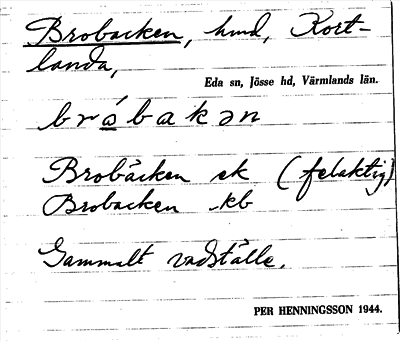 Brobacken, hmd, Kort-
landa,
Eda sn, Jösse hd, Värmlands län.
bråbakən
Brobäcken ek (felaktig)
Brobacken kb
Gammalt vadställe.
PER HENNINGSSON 1944.